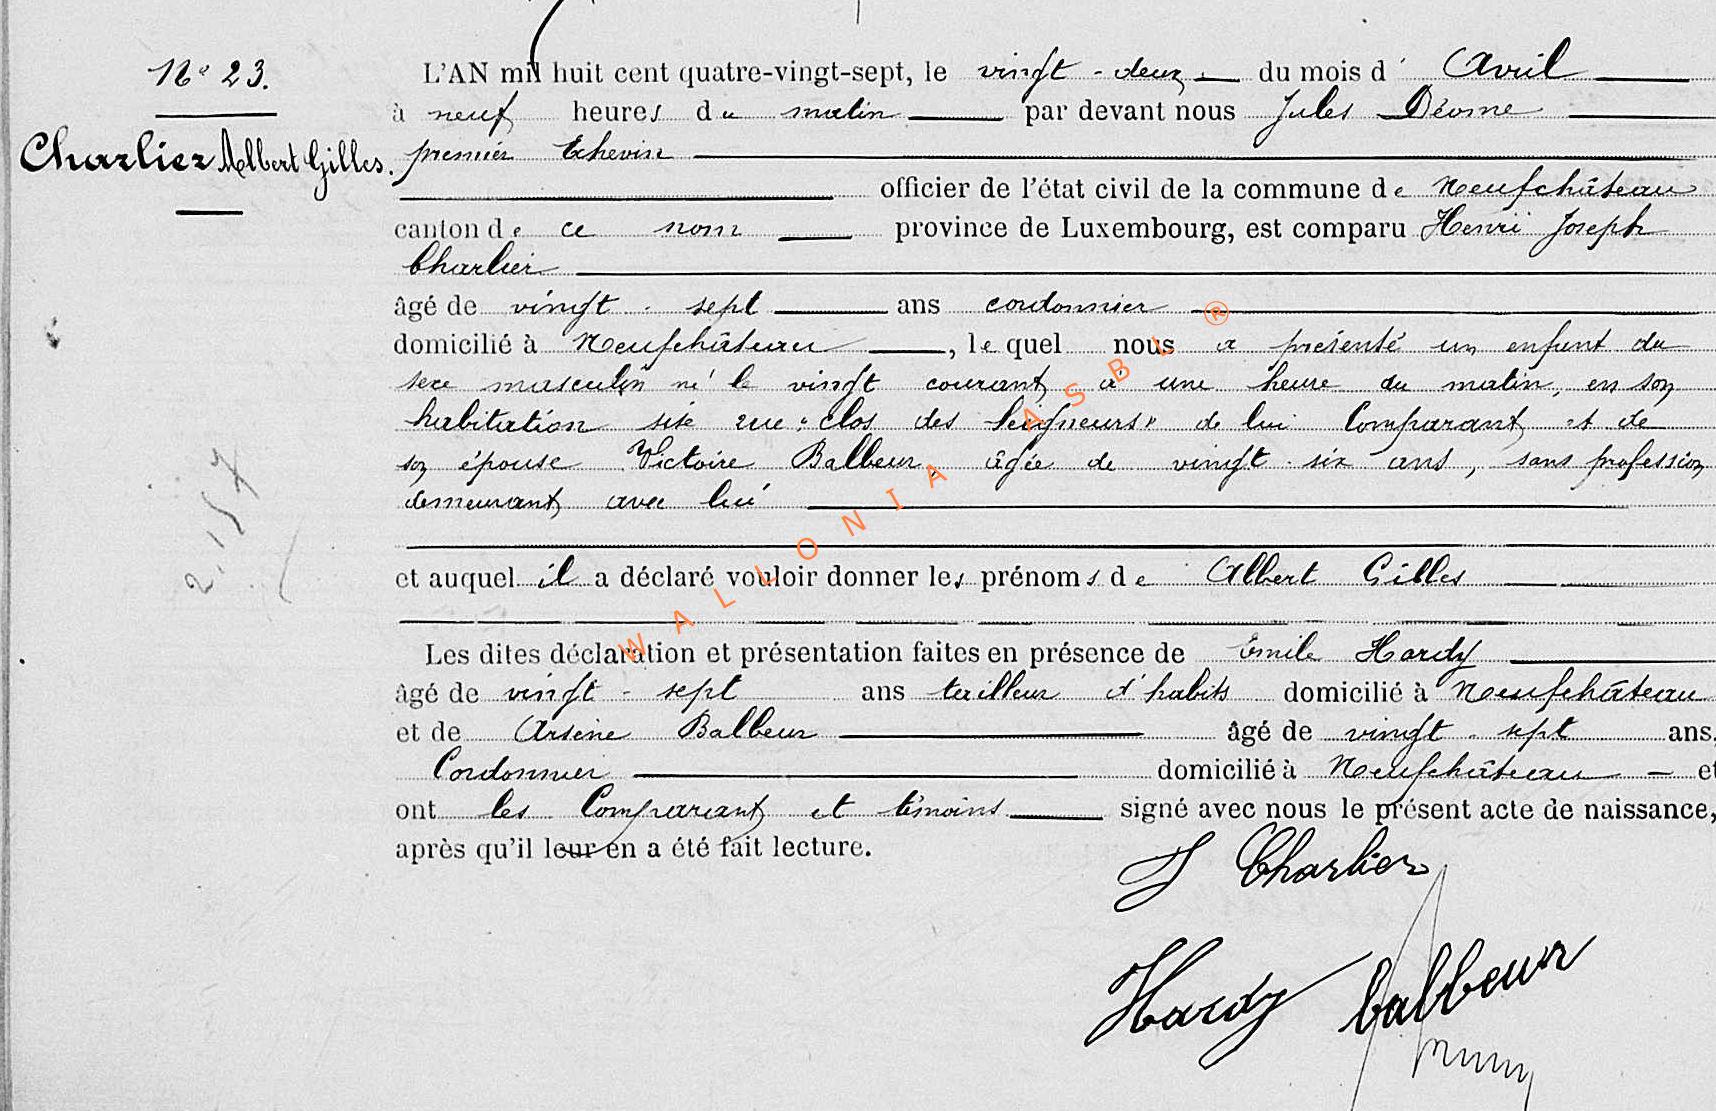 N° 23.
Charlier Albert Gilles.
L'AN mil huit cent quatre-vingt-sept, le vingt-deux du mois d' Avril
à neuf heures du matin par devant nous Jules Déome
premier Echevin
officier de l'état civil de la commune de Neufchâteau
canton de ce nom province de Luxembourg, est comparu Henri Joseph
Charlier
âgé de vingt-sept ans cordonnier
domicilié à Neufchâteau, lequel nous a présenté un enfant du
sexe masculin né le vingt courant à une heure du matin, en son
habitation sise rue "clos des Seigneurs" de lui Comparant et de
son épouse Victoire Balbeur, âgée de vingt-six ans, sans profession
demeurant avec lui
et auquel il a déclaré vouloir donner les prénoms de Albert Gilles
Les dites déclaration et présentation faites en présence de Emile Hardy
âgé de vingt-sept ans tailleur d'habits domicilié à Neufchâteau
et de Arsène Balbeur âgé de vingt-sept ans,
Cordonnier domicilié à Neufchâteau et
ont les Comparant et témoins signé avec nous le présent acte de naissance,
après qu'il leur en a été fait lecture.
J Charlier
Hardy balbeur
WALLONIA ASBL ®